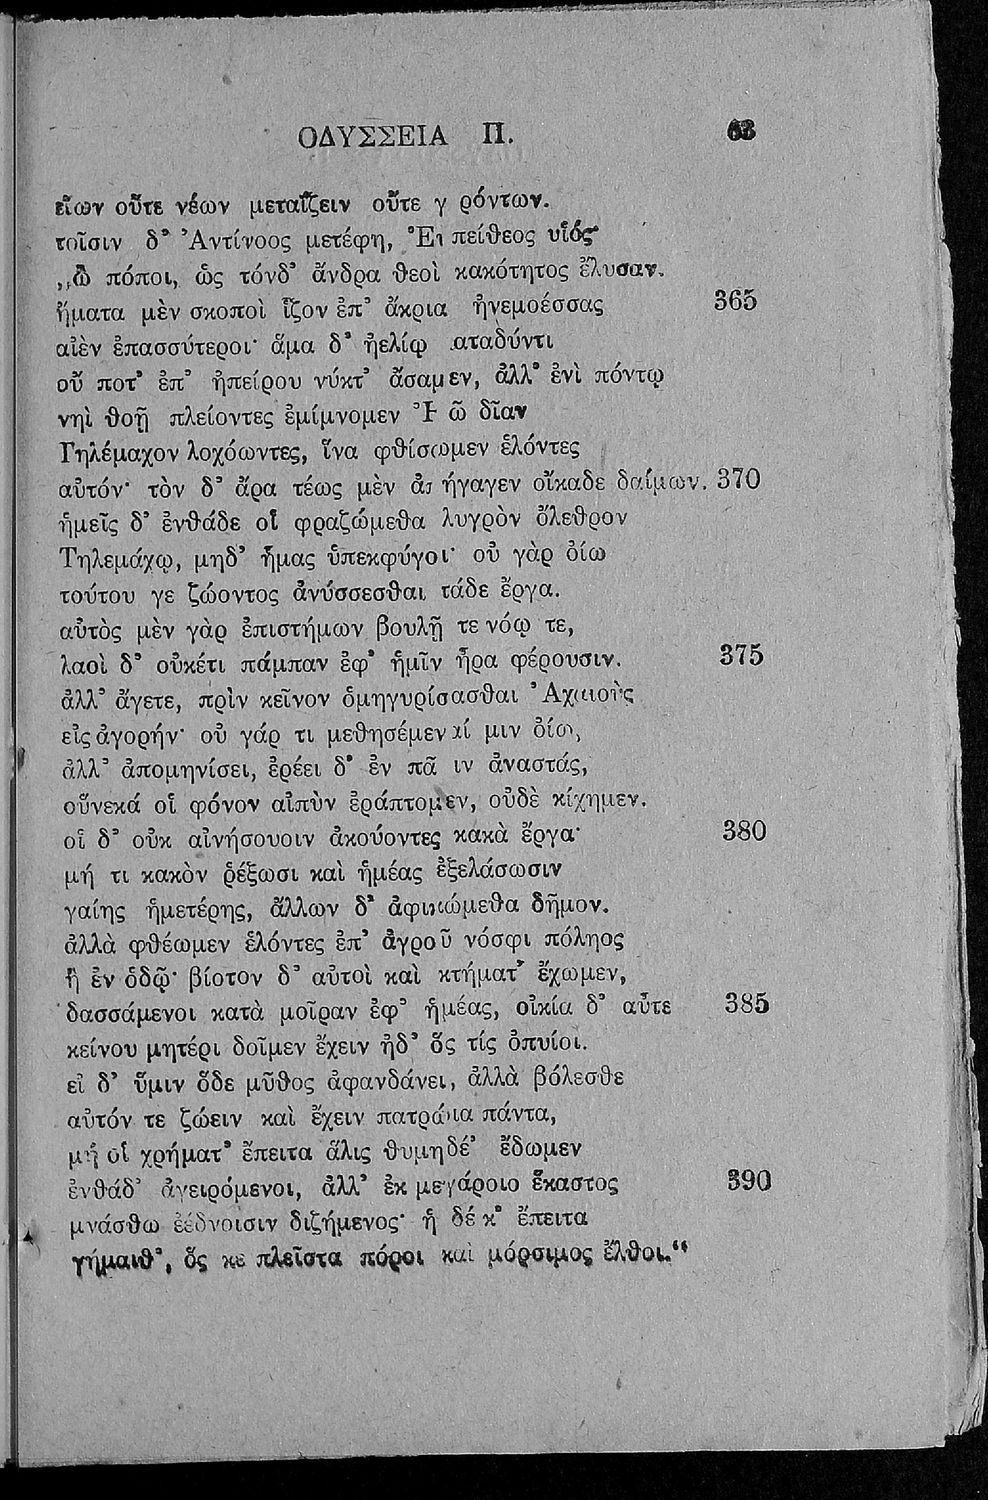 ΟΔΥΣΣΕΙΑ Π. 63
εἴων οὔτε νέων μεταΐζειν οὔτε γ ρόντων.
τοῖσιν δ' Ἀντίνοος μετέφη, Ἐι πείθεος υἱός
„ὢ πόποι, ὡς τόνδ' ἄνδρα θεοὶ κακότητος ἔλυσαν.
ἤματα μὲν σκοποὶ ἷζον ἐπ' ἄκρια ἠνεμοέσσας 365
αἰὲν ἐπασσύτεροι· ἅμα δ' ἠελίῳ αταδύντι
οὔ ποτ' ἐπ' ἠπείρου νύκτ' ἄσαμεν, ἀλλ' ἐνὶ πόντῳ
νηὶ θοῇ πλείοντες ἐμίμνομεν Ἠ ῶ δῖαν
Τηλέμαχον λοχόωντες, ἵνα φθίσωμεν ἑλόντες
αὐτόν· τὸν δ' ἄρα τέως μὲν ἀπ ήγαγεν οἴκαδε δαίμων. 370
ἡμεῖς δ' ἐνθάδε οἱ φραζώμεθα λυγρὸν ὄλεθρον
Τηλεμάχῳ, μηδ' ἧμας ὑπεκφύγοι· οὐ γὰρ ὀίω
τούτου γε ζώοντος ἀνύσσεσθαι τάδε ἔργα.
αὐτὸς μὲν γὰρ ἐπιστήμων βουλῇ τε νόῳ τε,
λαοὶ δ' οὐκέτι πάμπαν ἐφ' ἡμῖν ἦρα φέρουσιν. 375
ἀλλ' ἄγετε, πρὶν κεῖνον ὁμηγυρίσασθαι Ἀχαιοὺς
εἰς ἀγορήν· οὐ γάρ τι μεθησέμεν αί μιν ὀίω,
ἀλλ' ἀπομηνίσει, ἐρέει δ' ἐν πᾶ ιν ἀναστάς,
οὕνεκά οἱ φόνον αἰπὺν ἐράπτομεν, οὐδὲ κίχημεν.
οἱ δ' οὐκ αἰνήσουοιν ἀκούοντες κακὰ ἔργα· 380
μή τι κακὸν ῥέξωσι καὶ ἡμέας ἐξελάσωσιν
γαίης ἡμετέρης, ἄλλων δ' ἀφικώμεθα δῆμον.
ἀλλὰ φθέωμεν ἑλόντες ἐπ' ἀγροῦ νόσφι πόληος
ἢ ἐν ὁδῷ· βίοτον δ' αὐτοὶ καὶ κτήματ' ἔχωμεν,
δασσάμενοι κατὰ μοῖραν ἐφ' ἡμέας, οἰκία δ' αὖτε 385
κείνου μητέρι δοῖμεν ἔχειν ἠδ' ὅς τίς ὀπυίοι.
εἰ δ' ὕμιν ὅδε μῦθος ἀφανδάνει, ἀλλὰ βόλεσθε
αὐτόν τε ζώειν καὶ ἔχειν πατρώια πάντα,
μή οἱ χρήματ' ἔπειτα ἅλις θυμηδέ' ἔδωμεν
ἐνθάδ' ἀγειρόμενοι, ἀλλ' ἐκ μεγάροιο ἕκαστος 390
μνάσθω ἐέδνοισιν διζήμενος· ἡ δέ κ' ἔπειτα
γήμαιθ', ὅς κε πλεῖστα πόροι καὶ μόρσιμος ἔλθοι.“